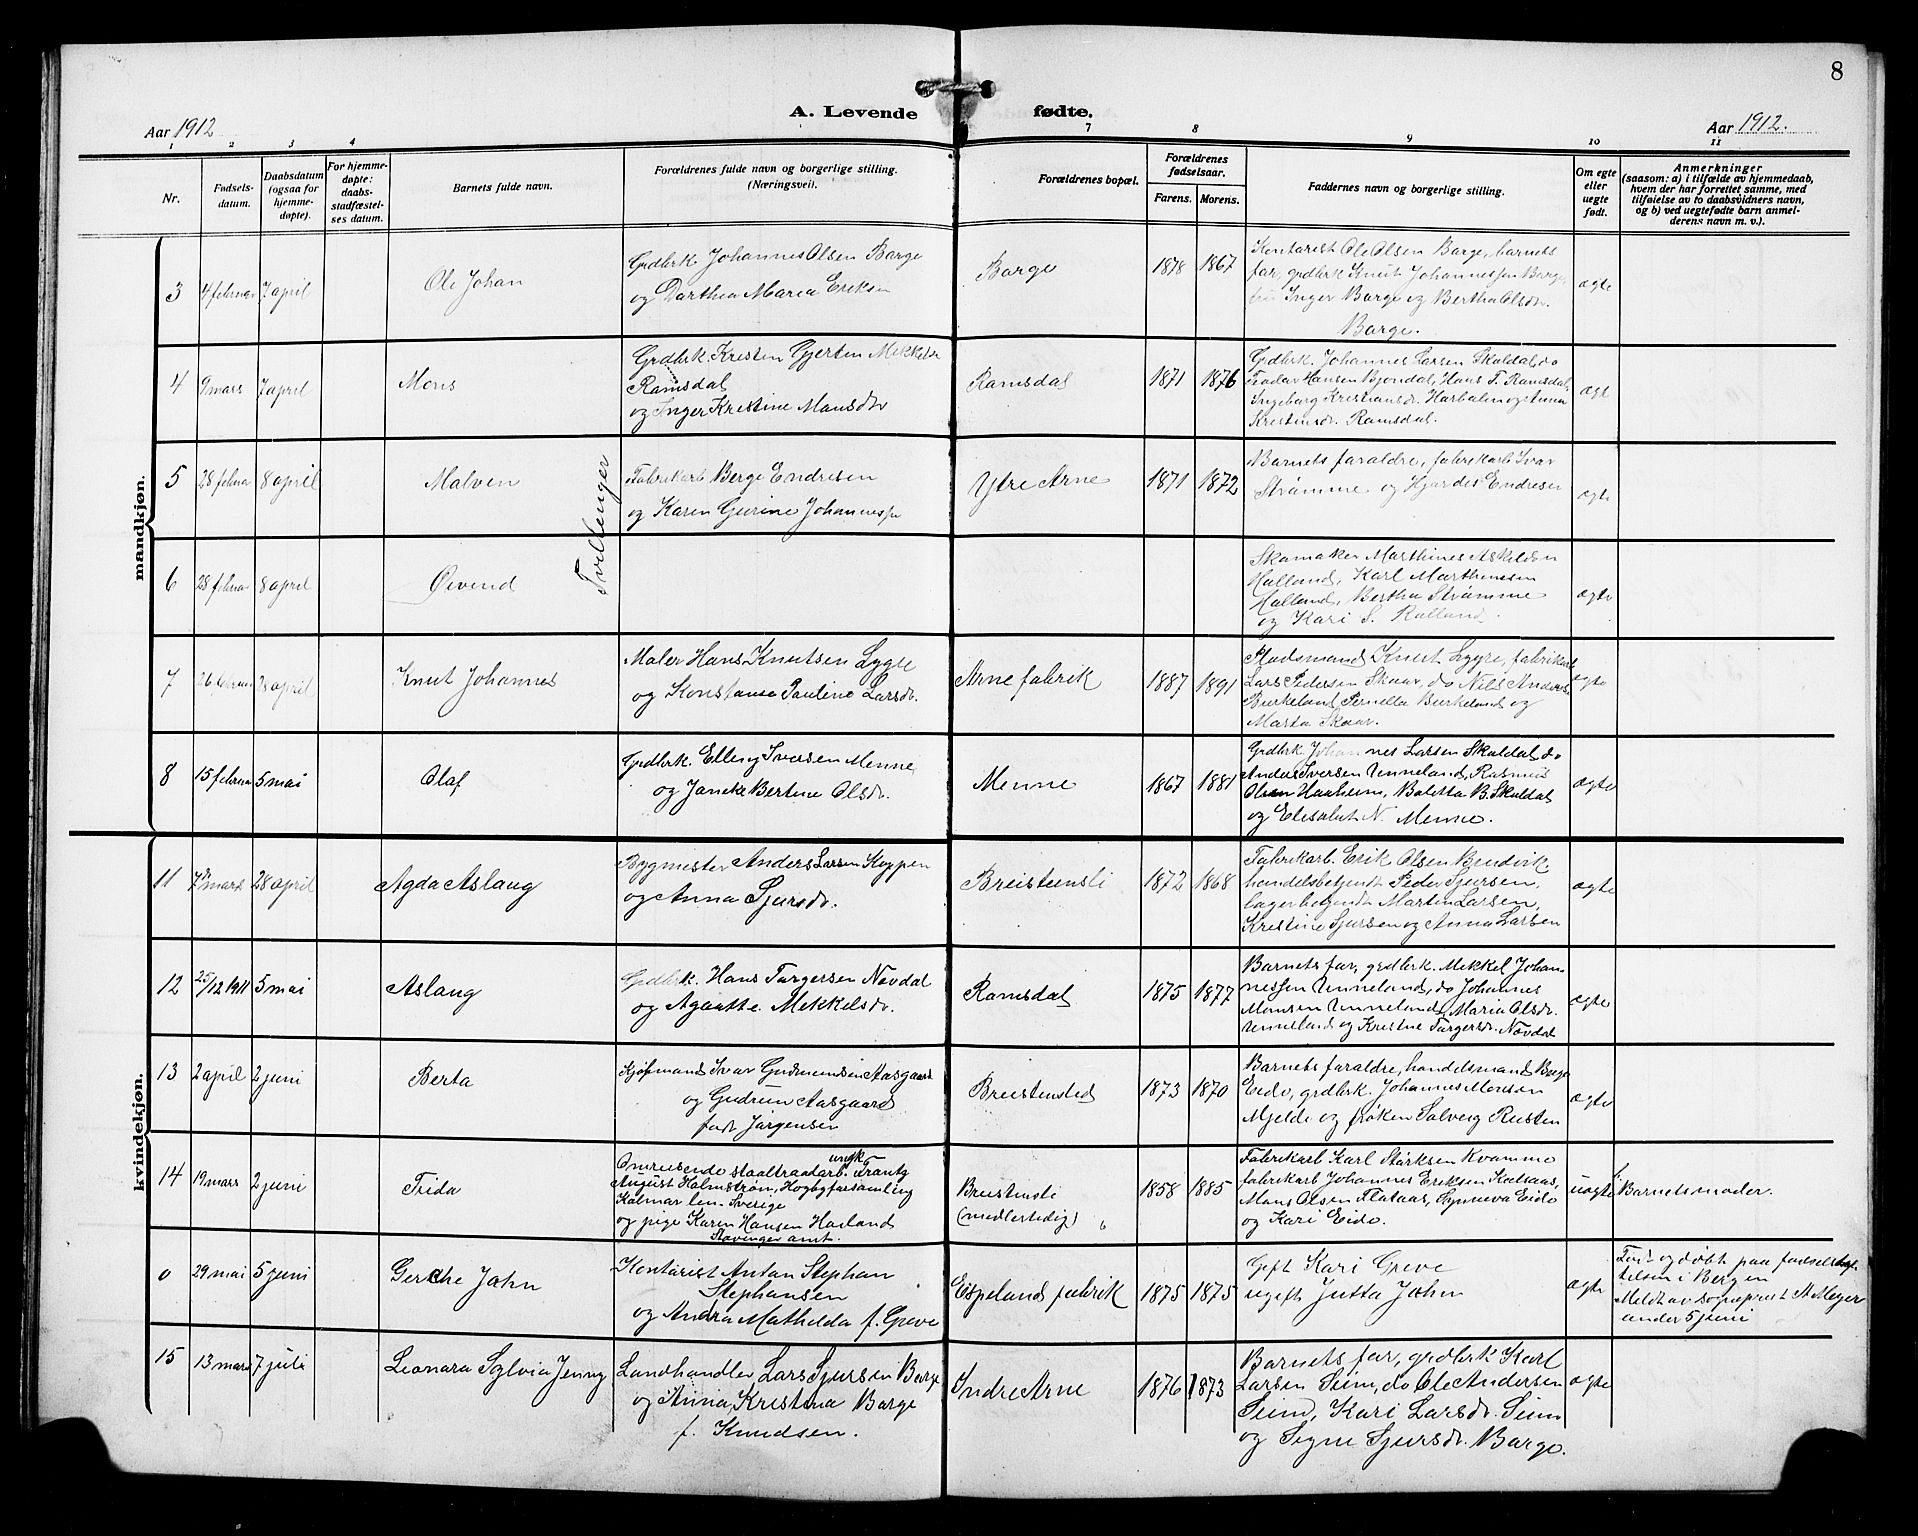 8
A. Levende fødte.
Aar 1912
Aar 1912.
1 2 3 4 7 8 9 10 11
Nr.
Fødsels-
datum.
Daabsdatum
(ogsaa for
hjemme-
døpte).
For hjemme-
døpte:
daabs-
stadfæstel-
ses datum.
Barnets fulde navn.
Forældrenes fulde navn og borgerlige stilling.
(Næringsvei).
Forældrenes bopæl.
Forældrenes
fødselsaar.
Farens. Morens.
Faddernes navn og borgerlige stilling.
Om egte
eller
uegte
født.
Anmerkninger
(saasom: a) i tilfælde av hjemmedaab,
hvem der har forrettet samme, med
tilføielse av to daabsvidners navn,
og b) ved uegtefødte barn anmel-
derens navn m. v.).
mandkjøn.
3 4 februar 7 april Ole Johan
Grdbrk Johannes Olsen Borge
og Dorthea Maria Eriksen
Borge 1878 1867
Kontorist Ole Olsen Borge, barnets
far, grdbrk Knut Johannessen Borge
fru Inger Borge og Bertha Olsdr.
Borge.
ægte
4 9 mars 7 april Mons
Grdbrk. Kristen Gjerten Mikkelsen
Ramsdal
og Inger Kristine Monsdtr
Ramsdal 1871 1876
Grdbrk. Johannes Larsen Skuldal, do
Teodor Hansen Bjondal, Hans T. Ramsdal,
Ingeborg Kristiansdr. Harbalen og Anna
Kristensdr. Ramsdal.
ægt
5 28 februar 8 april Malven
Tvillinger
Fabrikarb Berge Endresen
og Karen Gurine Johannesdr
Ytre Arne 1871 1872
Barnets foraldre, fabrikarb Ivar
Strømme og Hjørdis Endresen
ægte
6 28 februar 8 april Øivend
Skomaker Marthines Askildsen
Halland, Karl Marthinsen
Halland, Bertha Strømme
og Kari S. Rolland.
ægte
7 26 februar 28 april Knut Johannes
Maler Hans Knutsen Lygre
og Konstanse Pauline Larsdr.
Arne fabrik 1887 1891
Pladsmand Knut Lygre, fabrikarb
Lars Pedersen Skaar, do Nils Anders.
Burkeland Pernella Burkeland og
Marta Skaar.
ægte
8 15 februar 5 mai Olaf
Grdbrk. Elling Iversen Menne
og Janike Bertine Olsdr.
Menne 1867 1881
Grdbrk Johannes Larsen Skuldal, do
Anders Iversen Unneland, Rasmus
Olsen Haaheim, Boletta B. Skuldal
og Elisabet N. Menne.
ægte
kvindekjøn.
11 7de mars 28 april Agda Aslaug
Bygmester Anders Larsen Koppen
og Anna Sjursdr.
Breisteinsli 1872 1868
Fabrikarb. Erik Olsen Brudvik
handelsbetjendt Peder Sjursen,
lagerbetjendt Martin Larsen,
Kristine Sjursen og Anna Larsen
ægte
12 25/12 1911 5 mai Aslaug
Grdbrk. Hans Torgersen Novdal
og Agaatte Mekkelsdr.
Ramsdal 1875 1877
Barnets far, grdbrk. Mekkel Johan-
nessen Unneland, do Johannes
Monsen Unneland, Maria Olsdr.
Unneland og Kristne Torgersdr. Novdal
ægte
13 2 april 2 juni Berta
Kjøpmand Ivar Gudmundsen Aasgaard
og Gudrun Aasgaard
født Jørgensen
Breistensted 1873 1870
Barnets foraldre, handelsmand Børge
Eide, grdbrk. Johannes Monsen
Mjelde og frøken Solveig Rusten
ægte
14 19 mars 2 juni Frida
Omreisende staaltraadarb. ungk. Frantz
August Halmstrøn, Hogbyforsamling
Kalmar len - Sverige
og pige Karen Hansen Hovland
Stavanger amt.
Breistensli
(medlertidig) 1858 1885
Fabrikarb Karl Størksen Kvamme
fabrikarb Johannes Eriksen Kalsaas,
Mons Olsen Flataas, Synneva Eide
og Kari Eide.
uægte Barnets moder.
0 29 mai 5 juni Gerche Jahn
Kontorist Anton Stephan
Stephansen
og Andrea Mathilda f. Greve
Espeland fabrik 1875 1875
Gift Kari Greve
ugift Jutta Jahn
ægte
Født og døbt paa fødselstif-
telsen i Bergen
Meldt av sogneprest A Meyer
under 5 juni
15 13 mars 7 juli Leonora Sylvia Jenny
Landhandler Lars Sjursen Borge
og Anna Kristina Borge
f. Knudsen.
Indre Arne 1876 1873
Barnets far, grdbrk Karl
Larsen Seim, do Ole Andersen
Seim, Kari Larsdr. Seim
og Signe Sjursdr. Borge.
ægte